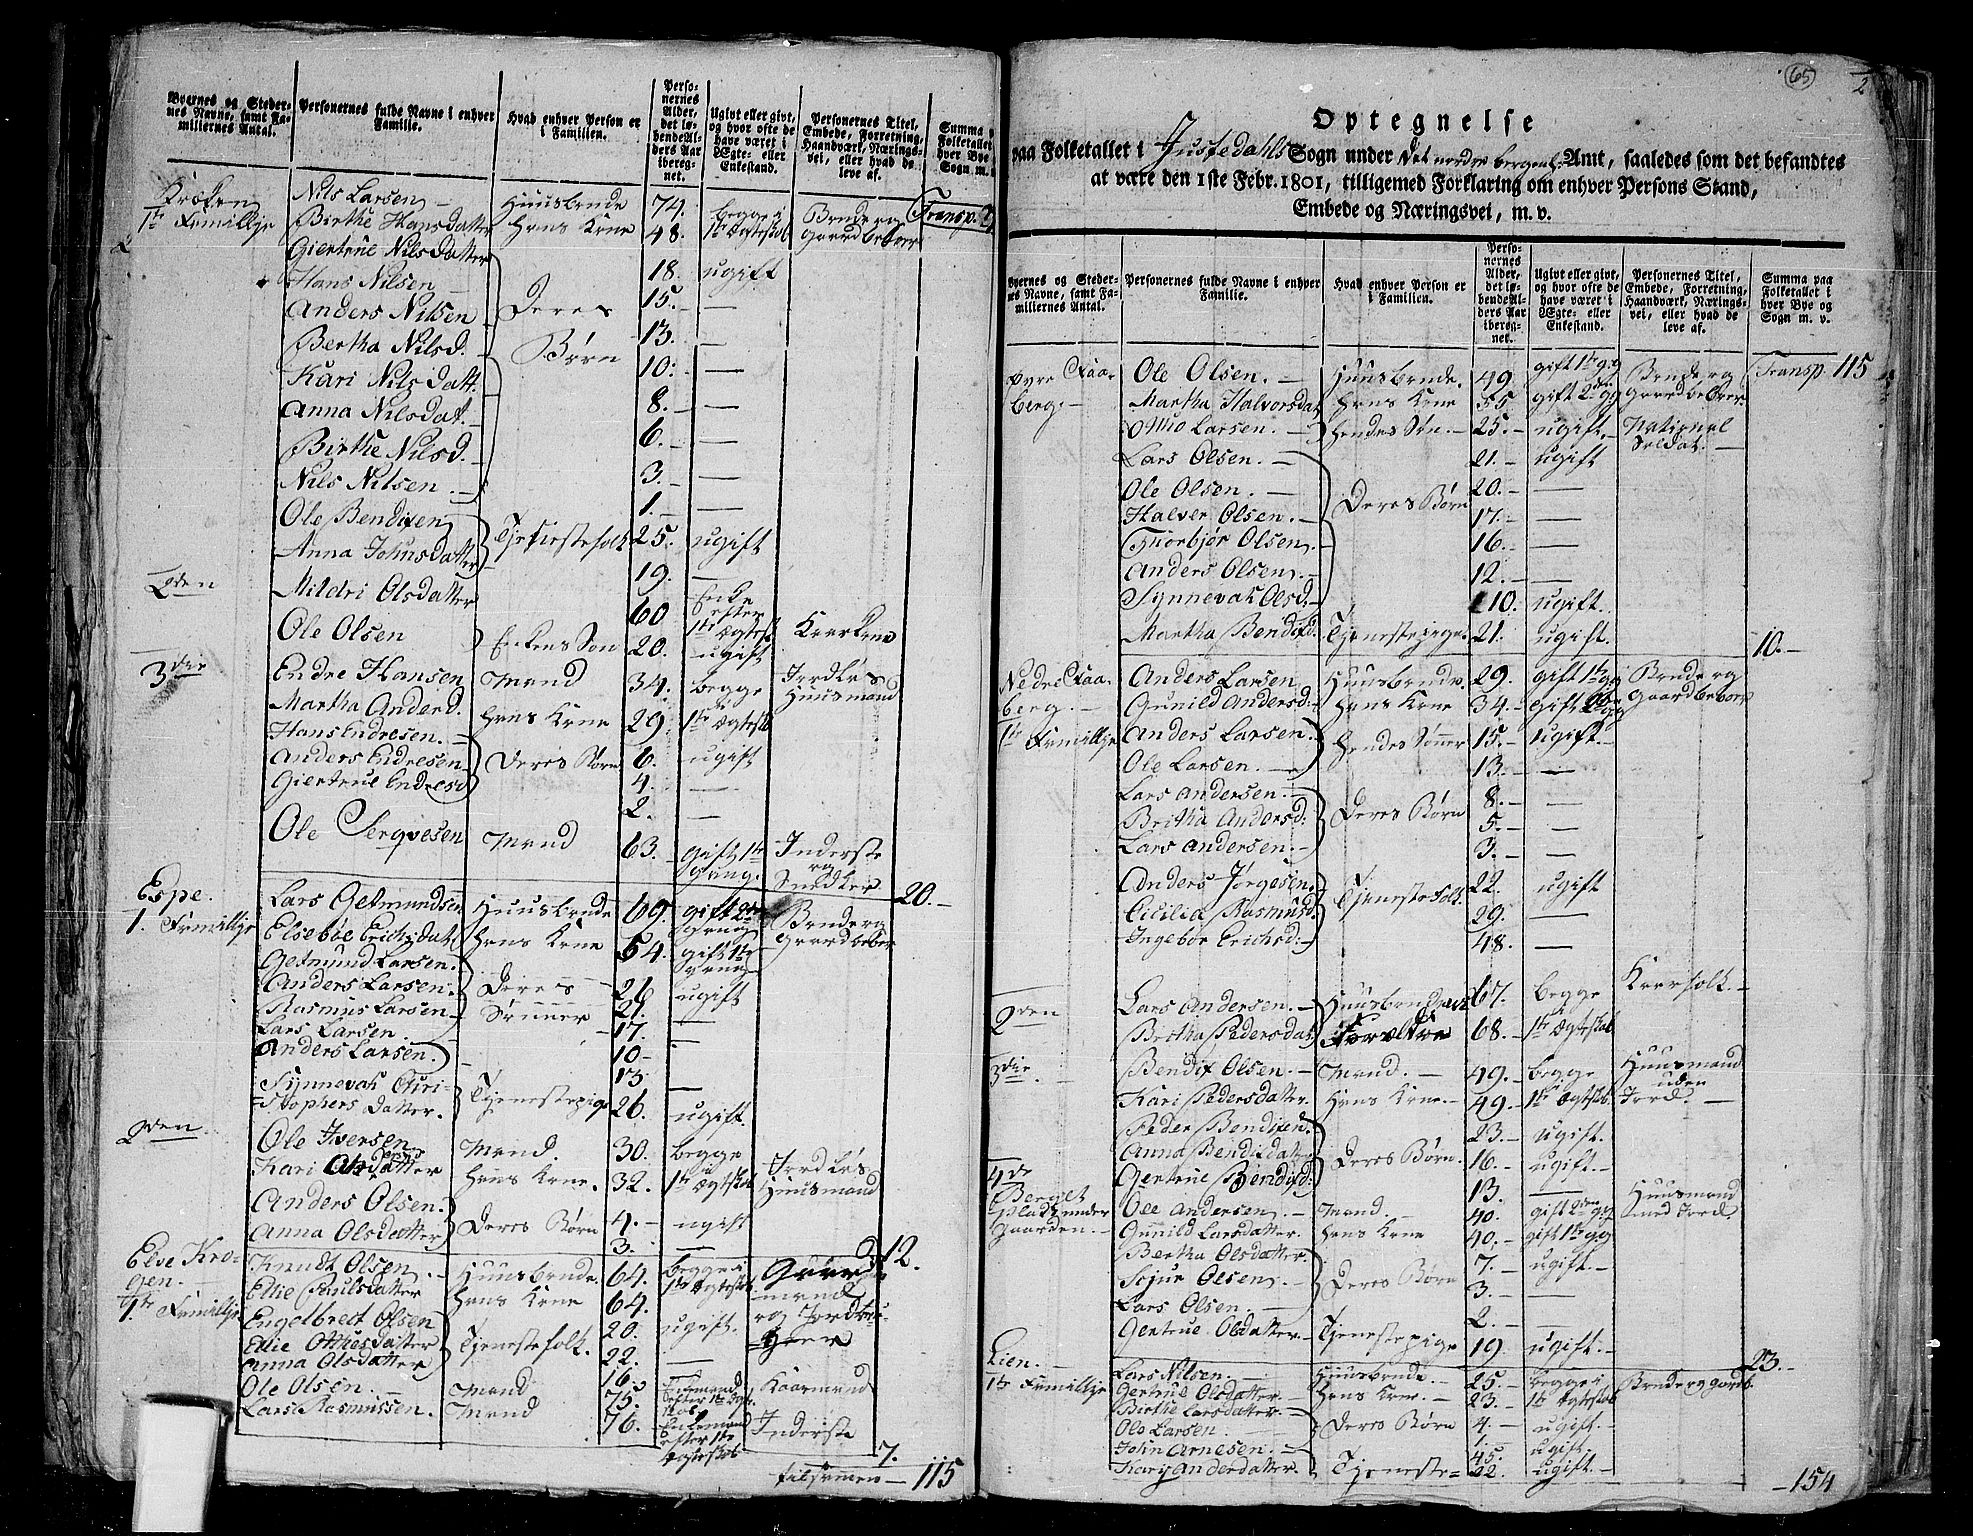 Byernes og Steder-
nes Navne, samt Fa-
miliernes Antal.
Personernes fulde Navne i enhver
Familie.
Hvad enhver Person er
i Familien.
Perso-
nernes
Alder,
det lø-
bende Al-
ders Aar
ibereg-
net.
Ugivt eller givt,
og hvor ofte de
have været i
Ægte- eller
Enkestand.
Personernes Titel,
Embede, Forretning,
Haandværk, Nærings-
vei, eller hvad de
leve af.
Summa
Folketallet
hver Bye
Sogn m.
Krøken Nils Larsen Huusbonde 74. begge i Bonde og Transp.
1te Familje Birthe Hansdatter hans Kone 48. 1te Ægteskab gaardbeboer
Giertrue Nilsdatter 18. ugift
Hans Nilsen 15. —
Anders Nilsen Deres 13. —
Bertha Nilsd. Børn 10. —
Kari Nilsdatt. 8. —
Anna Nilsdat. 6. —
Birthe Nilsd. 3. —
Nils Nilsen 1. —
Ole Bendixen Tjenistefolk 25. ugift
Anna Johnsdatter 19. —
2den Mildri Olsdatter 60 Enke efter 1te Ægtesk.
Ole Olsen Enkens Søn 20. ugift
3die Endre Hansen Mand 34. begge i Jordløs
Martha Anderd. hans Kone 29. 1te Ægteskb Huusmand
Hans Endresen. 6. ugift
Anders Endresen Deres Børn 4. —
Giertrue Endresd 2. —
Ole Sergvesen Mand 63. gift 1te Gang. Inderste og Snedker 20.—
Espe. Lars Getmundsen Huusbonde 69. gift 2den Gang Bonde og
1. Familje Elsebøe Erichsdat. hans Kone 54. gift 1te Gang Gaardbeboer
Getmund Larsen. 21. ugift
Anders Larsen. Deres 21. —
Rasmus Larsen Sønner 17. —
Lars Larsen 10 —
Anders Larsen. 13 —
Synnevah Chri-
stophers datter. Tjenestepige 26. ugift.
2den Ole Iversen Mand. 30. begge i Jordløs
Kari Olsdatter hans Kone. 32. 1te Ægtskab Huusmand
Anders Olsen. 4. — ugift
Anna Olsdatter Deres Børn 3. — 12.
Elve Kro- Knudt Olsen. Huusbonde. 64. begge i
gen. Ellie Paulsdatter hans Kone 64. 1te Ægteskab
1te Familje Engelbrect Olsen 20. ugift.
Ellie Otthesdatter Tjenestefolk. 22. —
Anna Olsdatter 16.
Ole Olsen. Mand 75. Kaarmand
Lars Rasmussen. Mand 76. Enkemand efter 1te Ægteskab Inderste
7.
tilsamen — 115
65
2
Optegnelse
paa Folketallet i Justedahls Sogn under Det nordre bergenh. Amt, saaledes som det befandtes
at være den 1ste Febr. 1801, tilligemed Forklaring om enhver Persons Stand,
Embede og Næringsvei, m. v.
Byernes og Steder-
nes Navne, samt Fa-
miliernes Antal.
Personernes fulde Navne i enhver
Familie.
Hvad enhver Person er
i Familien.
Perso-
nernes
Alder,
det lø-
bende Al-
ders Aar
ibereg-
net.
Ugivt eller givt,
og hvor ofte de
have været i
Ægte- eller
Enkestand.
Personernes Titel,
Embede, Forretning,
Haandværk, Nærings-
vei, eller hvad de
leve af.
Summa paa
Folketallet i
hver Bye og
Sogn m. v.
Øvre Faa- Ole Olsen. — Huusbonde. 49. gift 1te gg Bonde og Transp. 115
berg. — Martha Halvorsdat hans Kone 55 gift 2den gg gaardbeboer.
Otthe Larsen. — hendes Søn. — 25. — ugift. National Soldat. —
Lars Olsen. — 21. — ugift
Ole Olsen. — 20. — —
Halver Olsen. — Deres Børn 17. — —
Thorbjør Olsen. 16. — —
Anders Olsen. — 12. — —
Synnevah Olsd: — 10. ugift.
Martha Bendixd. Tjenestepige. 21. ugift. 10. —
Nedre Faa- Anders Larsen Huusbonde. 29. gift 1te gg Bonde og
berg. — Gunild Andersd: hans Kone 34. — gift 2den gg Gaardbeboer
1te Familje Anders Larsen. hendes Sønner 15. — ugift. —
Ole Larsen. — 13. — —
Lars Andersen. 8. — —
Britha Andersd: Deres Børn 5. — —
Lars Andersen. — 3. — —
Anders Jørgesen. 22. ugift
Cicilia Rasmusd: Tjenestefolk. 29. —
Ingebor Erichsd: — 48. —
2den Lars Andersen. — 67. begge i Kaarfolk. —
Britha Pedersdat. Forældre 68. 1te Ægteskab
3die. Bendix Olsen. — Mand. — 49. — begge i Huusmand
Kari Pedersdatter. hans Kone. — 49. — 1te Ægtskb. uden Jord. —
Peder Bendixen. 23. — ugift.
Anna Bendixdatter Deres Børn. 16. — ugift. —
Gertrue Bendixd: 13. —
4de Berget Ole Andersen. Mand. — 40. gift 2den gg Huusmand
Plads under Gunild Larsdatter. hans Kone 40. — gift 1te gg med Jord.
Gaarden. — Bertha Olsdatter. 7. — ugift. —
Sojur Olsen. — Deres Børn 3. — —
Lars Olsen. — 2. — —
Gertrue Olsdatter. — Tjenestepige 19. ugift. — 23. —
Lien. — Lars Nilsen. — Huusbonde. — 25. — begge i Bonde og gardb.
1te Familje Gertrue Olsdatter. hans Kone. — 23. — 1te Ægteskab
Birthe Larsdatter. — Deres Børn 4. — ugift
Ole Larsen. 1. — ugift.
John Arnesen. — 45. ugift. —
Kari Anderdatter. Tjeneste= 22. ugift. —
— 154